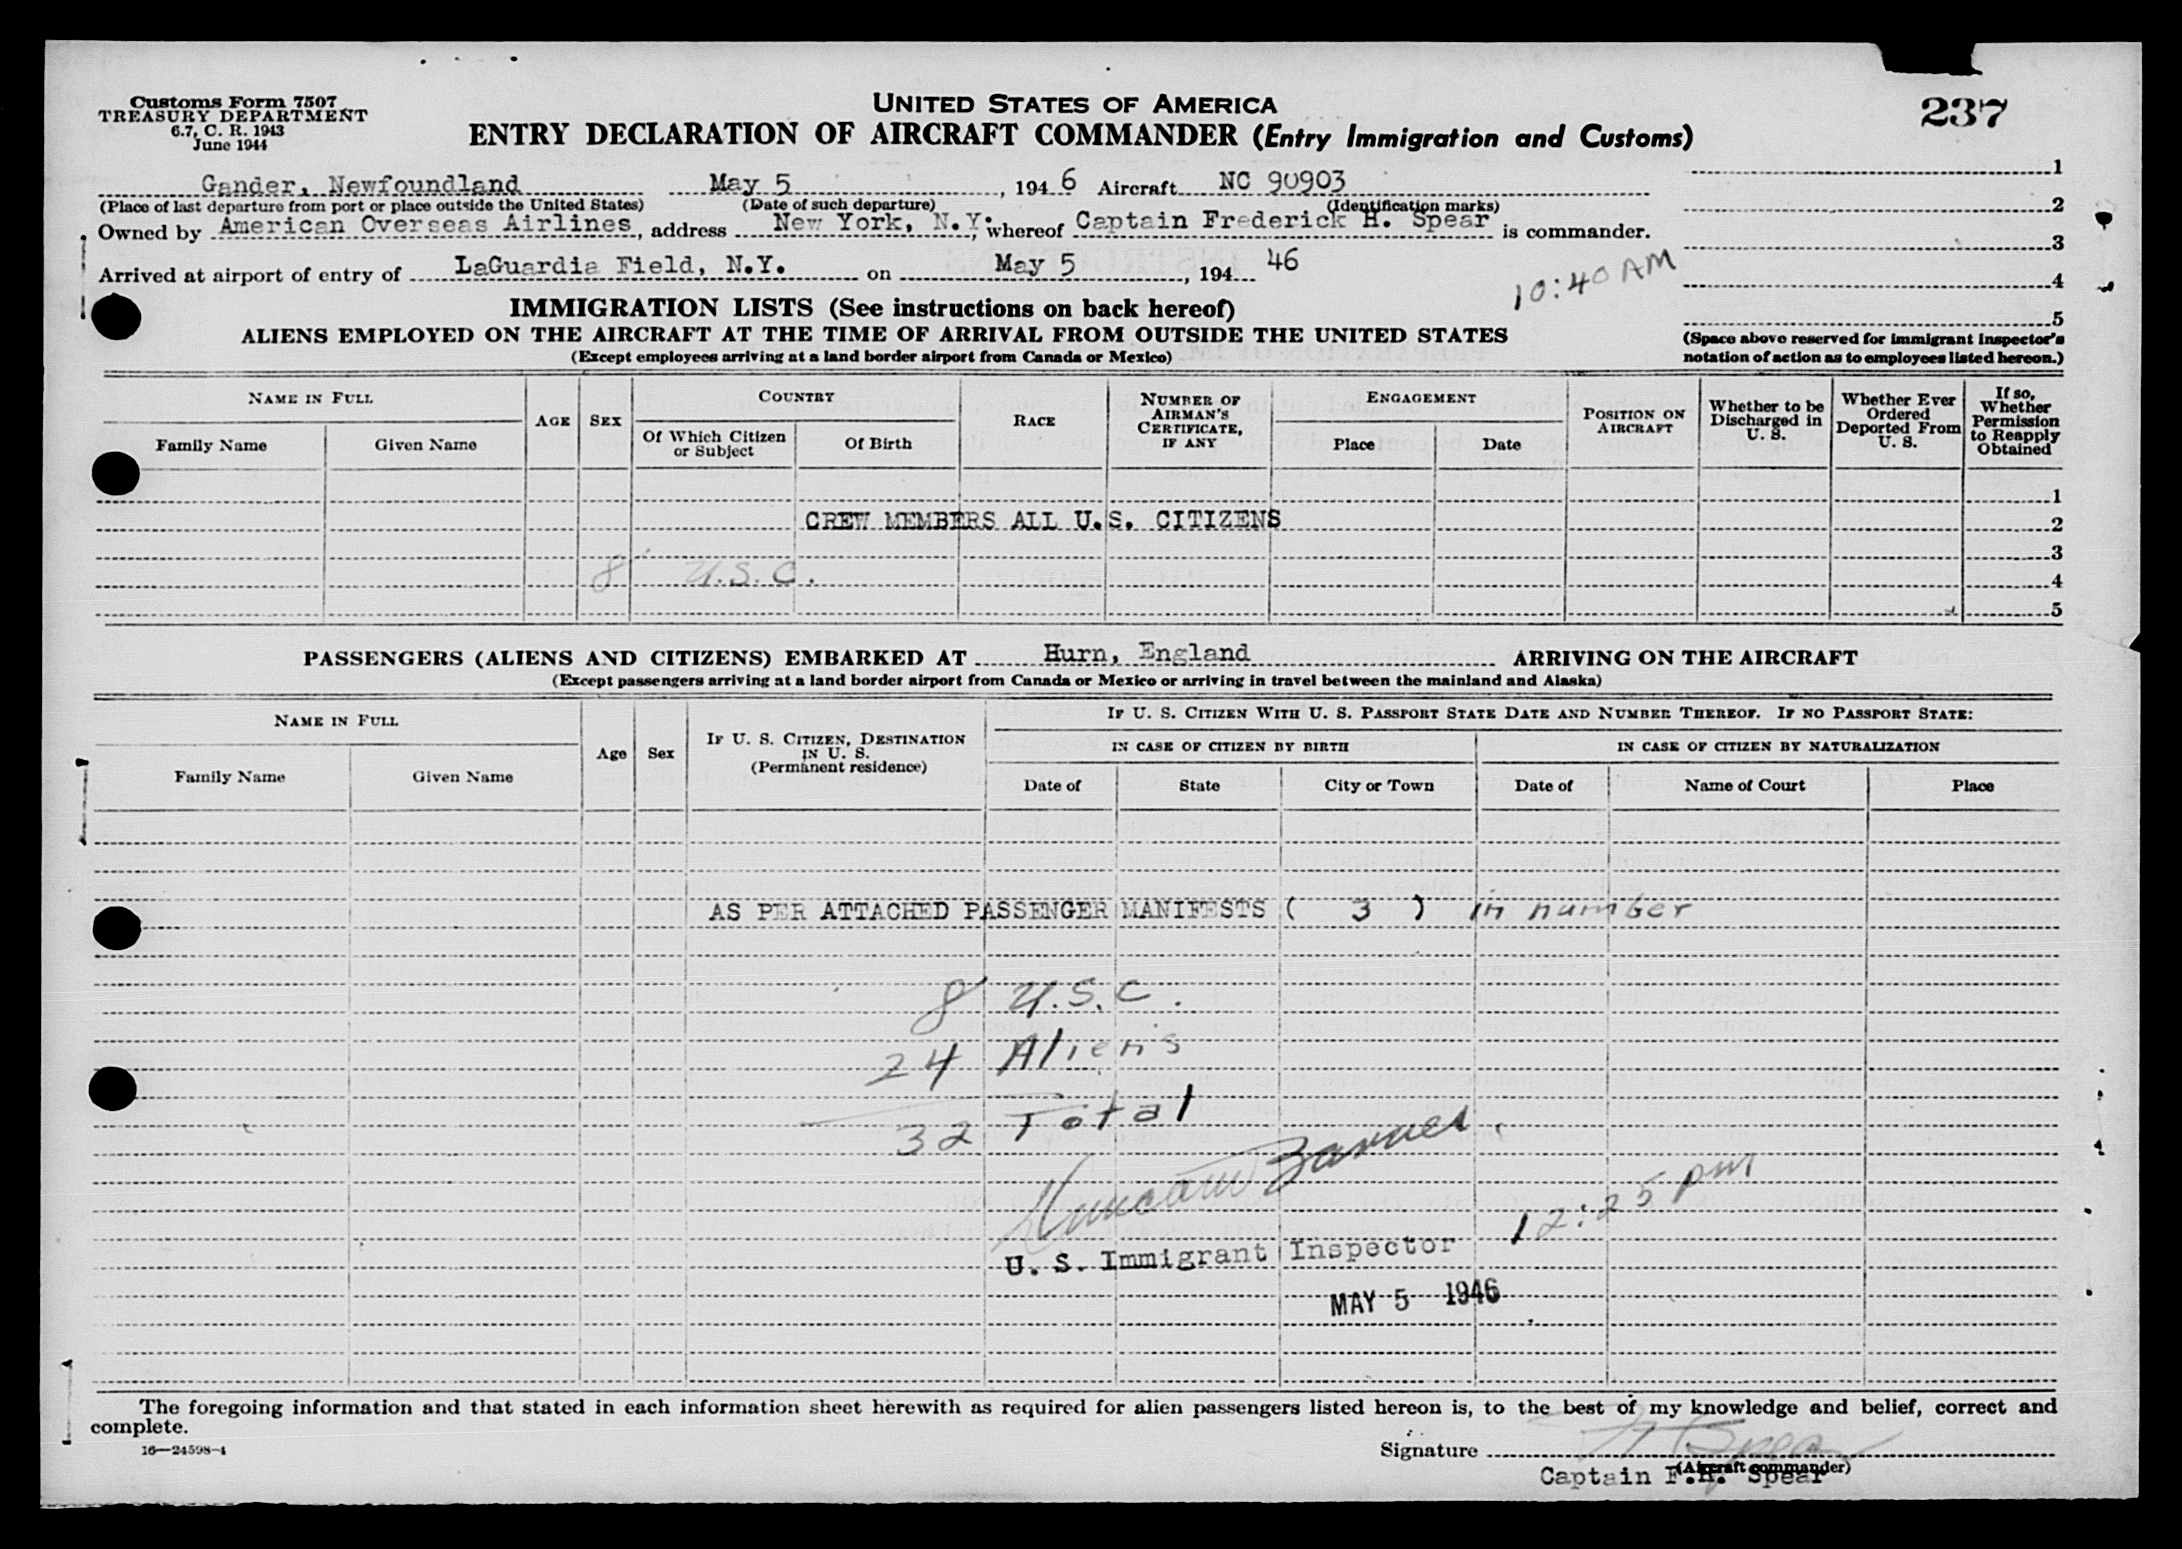 Customs Form 7507
TREASURY DEPARTMENT
6.7, C. R. 1943
June 1944
UNITED STATES OF AMERICA
ENTRY DECLARATION OF AIRCRAFT COMMANDER (Entry Immigration and Customs)
237
Gander, Newfoundland May 5, 1946 Aircraft NC 90903
(Place of last departure from port or place outside the United States) (Date of such departure) (Identification marks)
Owned by American Overseas Airlines, address New York, N.Y., whereof Captain Frederick H. Spear is commander.
Arrived at airport of entry of LaGuardia Field, N.Y. on May 5, 194 46
10:40 AM
1
2
3
4
5
(Space above reserved for immigrant inspector's
notation of action as to employees listed hereon.)
IMMIGRATION LISTS (See instructions on back hereof)
ALIENS EMPLOYED ON THE AIRCRAFT AT THE TIME OF ARRIVAL FROM OUTSIDE THE UNITED STATES
(Except employees arriving at a land border airport from Canada or Mexico)
NAME IN FULL
Family Name
Given Name
AGE
SEX
COUNTRY
Of Which Citizen
or Subject
Of Birth
RACE
NUMBER OF
AIRMAN'S
CERTIFICATE,
IF ANY
ENGAGEMENT
Place
Date
POSITION ON
AIRCRAFT
Whether to be
Discharged in
U. S.
Whether Ever
Ordered
Deported From
U. S.
If so,
Whether
Permission
to Reapply
Obtained
1
CREW MEMBERS ALL U.S. CITIZENS 2
3
8 U.S.C. 4
5
PASSENGERS (ALIENS AND CITIZENS) EMBARKED AT Hurn, England ARRIVING ON THE AIRCRAFT
(Except passengers arriving at a land border airport from Canada or Mexico or arriving in travel between the mainland and Alaska)
NAME IN FULL
Family Name
Given Name
Age
Sex
IF U. S. CITIZEN, DESTINATION
IN U. S.
(Permanent residence)
IF U. S. CITIZEN WITH U. S. PASSPORT STATE DATE AND NUMBER THEREOF. IF NO PASSPORT STATE:
IN CASE OF CITIZEN BY BIRTH
IN CASE OF CITIZEN BY NATURALIZATION
Date of
State
City or Town
Date of
Name of Court
Place
AS PER ATTACHED PASSENGER MANIFESTS ( 3 ) in number
8 U.S.C.
24 Aliens
32 Total
12:25 pm
U. S. Immigrant Inspector
MAY 5 1946
The foregoing information and that stated in each information sheet herewith as required for alien passengers listed hereon is, to the best of my knowledge and belief, correct and
complete.
16—24598-1
Signature F H Spear
(Aircraft commander)
Captain F.H. Spear